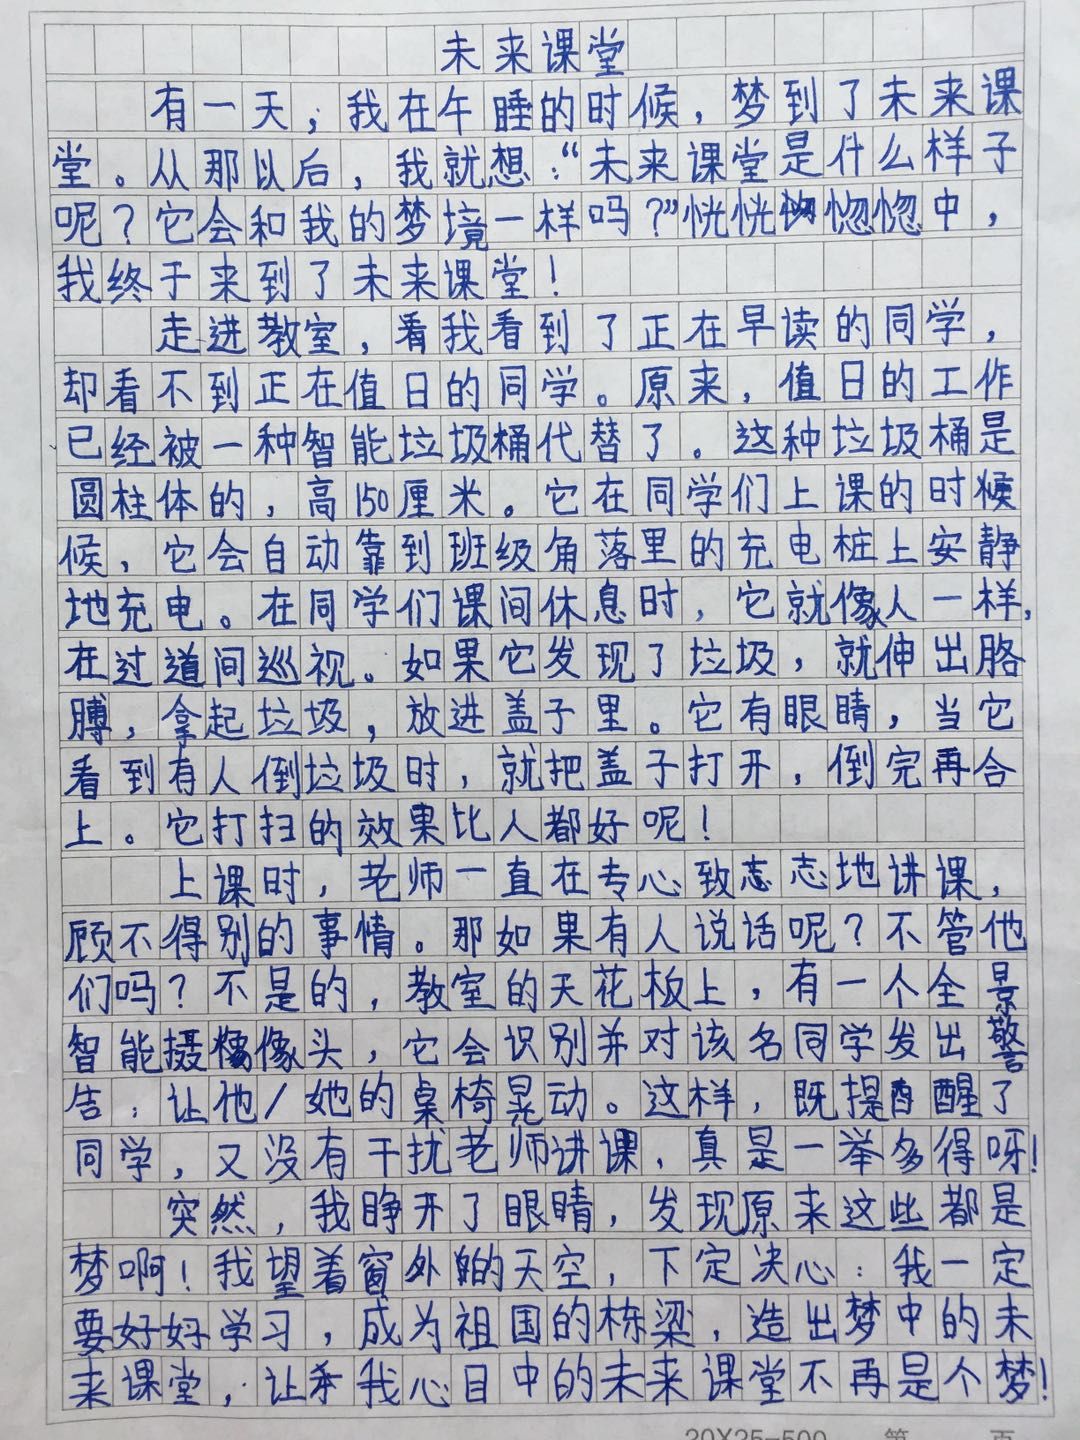 未来课堂
有一天，我在午睡的时候，梦到了未来课
堂。从那以后，我就想：“未来课堂是什么样子
呢？它会和我的梦境一样吗？”恍恍惚惚中，
我终于来到了未来课堂！
走进教室，看我看到了正在早读的同学，
却看不到正在值日的同学。原来，值日的工作
已经被一种智能垃圾桶代替了。这种垃圾桶是
圆柱体的，高150厘米。它在同学们上课的时候
候，它会自动靠到班级角落里的充电桩上安静
地充电。在同学们课间休息时，它就像人一样，
在过道间巡视。如果它发现了垃圾，就伸出胳
膊，拿起垃圾，放进盖子里。它有眼睛，当它
看到有人倒垃圾时，就把盖子打开，倒完再合
上。它打扫的效果比人都好呢！
上课时，老师一直在专心致志志地讲课，
顾不得别的事情。那如果有人说话呢？不管他
们吗？不是的，教室的天花板上，有一个全景
智能摄像头，它会识别并对该名同学发出警
告，让他/她的桌椅晃动。这样，既提醒了
同学，又没有干扰老师讲课，真是一举多得呀！
突然，我睁开了眼睛，发现原来这些都是
梦啊！我望着窗外的天空，下定决心：我一定
要好好学习，成为祖国的栋梁，造出梦中的未
来课堂，让我心目中的未来课堂不再是个梦！
20X25=500 第 页